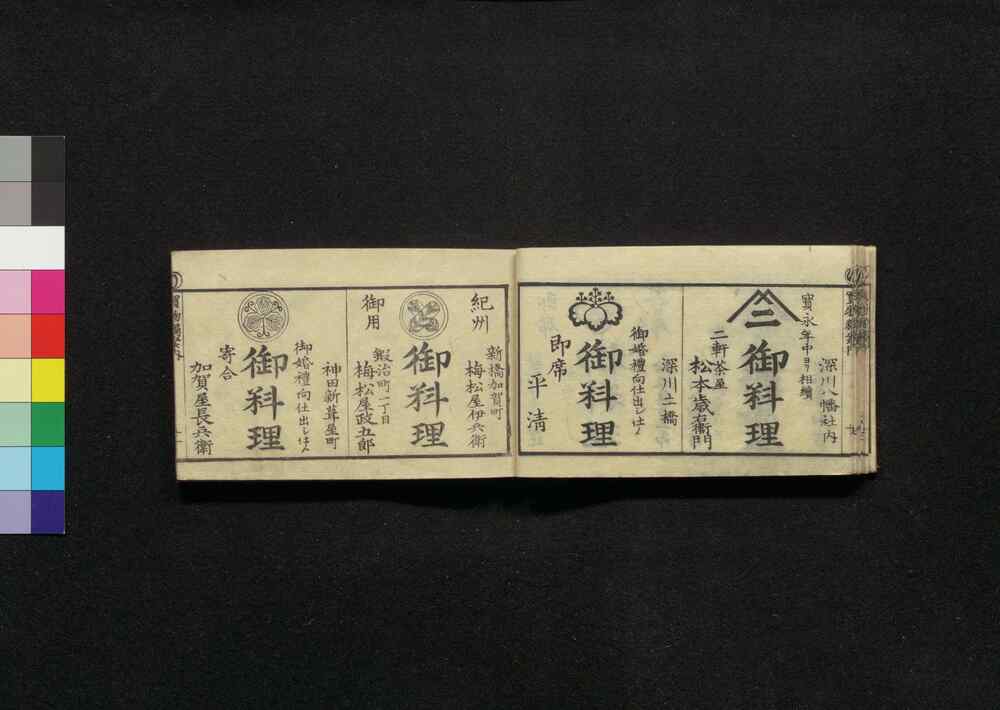 深川八幡社内
寳永年中ヨリ相續
御料理
二軒茶屋
松本歳右衛門
深川土橋
御婚禮向仕出し仕候
御料理
即席
平清
紀州
新橋加賀町
梅松屋伊兵衛
御料理
御用
鍛治町一丁目
梅松屋政五郎
神田新葺屋町
御婚禮向仕出し仕候
御料理
寄合
加賀屋長兵衛